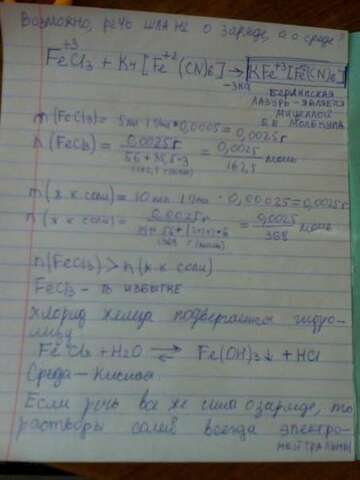 Возможно, речь шла не о заряде, а о среде?
Fe⁺³Cl₃ + K₄[Fe⁺²(CN)₆] → KFe⁺³[Fe⁺²(CN)₆]
-3KCl
БЕРЛИНСКАЯ
ЛАЗУРЬ - ЯВЛЯЕТСЯ
МИЦЕЛЛОЙ
m(FeCl₃) = 5мл · 1г/мл · 0,0005 = 0,0025г
n(FeCl₃) = 0,0025г / 56+35,5·3 = 0,0025 / 162,5 моль
(162,5 г/моль)
m(ж к соли) = 10мл · 1г/мл · 0,00025 = 0,0025г
n(ж к соли) = 0,0025г = 0,0025 / 368 моль
(368 г/моль)
n(FeCl₃) > n(ж к соли)
FeCl₃ - в ИЗБЫТКЕ
хлорид железа подвергается гидро-
лизу
FeCl₃ + H₂O ⇄ Fe(OH)₃↓ + HCl
Среда - Кислая
Если речь все же шла о заряде, то
растворы солей всегда электро-
НЕЙТРАЛЬНЫ